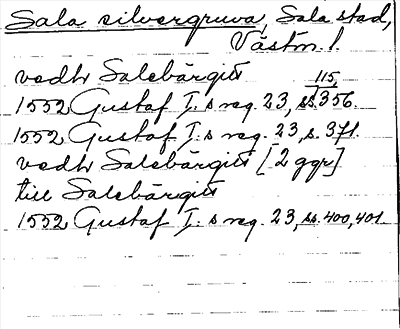 Sala silvergruva, Sala stad,
Västm. l.
vedh Salebärgit
115,
1552 Gustaf I:s reg. 23, ss. 356.
1552 Gustaf I:s reg. 23, s. 371.
vedh Salebärgit [2 ggr]
till Salebärgit
1552 Gustaf I:s reg. 23, ss. 400, 401.